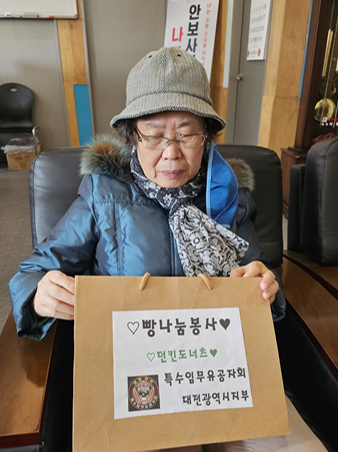 나눔봉사단
안보사
나
♡빵나눔봉사♥
♡던킨도너츠♥
특수임무유공자회
대전광역시지부